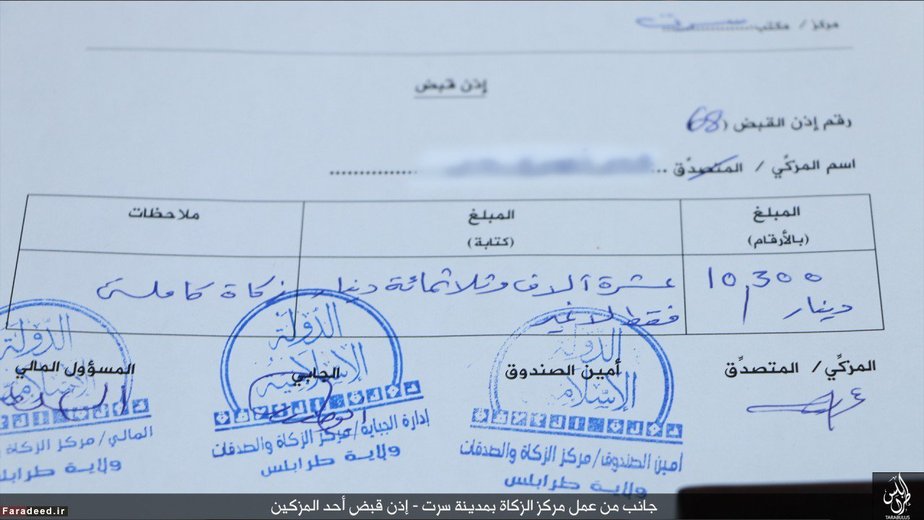 مركز / مكتب سرت
إذن قبض
رقم إذن القبض (68
اسم المزكّي / المتصدّق
المبلغ (بالأرقام)
المبلغ (كتابة)
ملاحظات
10,300 دينار
عشرة آلاف وثلاثمائة دينار فقط لا غير
زكاة كاملة
المزكّي / المتصدّق
أمين الصندوق
الجابي
المسؤول المالي
الدولة الإسلامية
أمين الصندوق/مركز الزكاة والصدقات
ولاية طرابلس
الدولة الإسلامية
إدارة الجباية/مركز الزكاة والصدقات
ولاية طرابلس
الدولة الإسلامية
المالي/مركز الزكاة
ولاية طرابلس
جانب من عمل مركز الزكاة بمدينة سرت - إذن قبض أحد المزكين
TARABULUS
Faradeed.ir